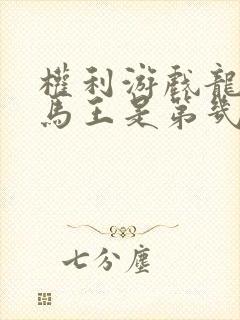 權利游戲龍
馬王是第幾
七分塵